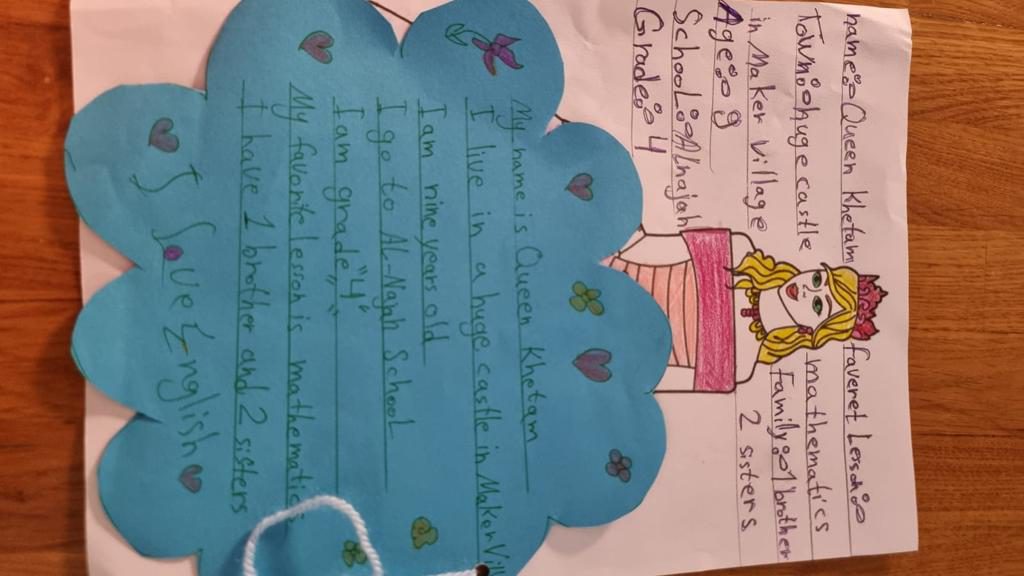 name: Queen Khetam
Town: huge castle
in Maker Village
Age: 9
School: Alnajah
Grade: 4
faveret Lesson:
mathematics
Family: 1 brother
2 sisters
My name is Queen Khetam
I live in a huge castle in Maker Vill
I am nine years old
I go to AL-Najah School
I am grade "4"
My favorite lesson is mathematics
I have 1 brother and 2 sisters
I Love English